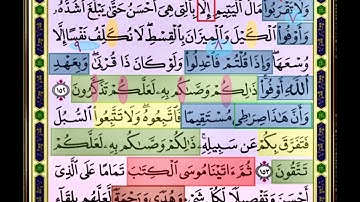 وَلَا تَقْرَبُوا۟ مَالَ ٱلْيَتِيمِ إِلَّا بِٱلَّتِى هِىَ أَحْسَنُ حَتَّىٰ يَبْلُغَ أَشُدَّهُۥ
وَأَوْفُوا۟ ٱلْكَيْلَ وَٱلْمِيزَانَ بِٱلْقِسْطِ لَا نُكَلِّفُ نَفْسًا إِلَّا
وُسْعَهَا وَإِذَا قُلْتُمْ فَٱعْدِلُوا۟ وَلَوْ كَانَ ذَا قُرْبَىٰ وَبِعَهْدِ
ٱللَّهِ أَوْفُوا۟ ذَٰلِكُمْ وَصَّىٰكُم بِهِۦ لَعَلَّكُمْ تَذَكَّرُونَ ١٥٢
وَأَنَّ هَٰذَا صِرَٰطِى مُسْتَقِيمًا فَٱتَّبِعُوهُ وَلَا تَتَّبِعُوا۟ ٱلسُّبُلَ
فَتَفَرَّقَ بِكُمْ عَن سَبِيلِهِۦ ذَٰلِكُمْ وَصَّىٰكُم بِهِۦ لَعَلَّكُمْ
تَتَّقُونَ ١٥٣ ثُمَّ ءَاتَيْنَا مُوسَى ٱلْكِتَٰبَ تَمَامًا عَلَى ٱلَّذِىٓ
أَحْسَنَ وَتَفْصِيلًا لِّكُلِّ شَىْءٍ وَهُدًى وَرَحْمَةً لَّعَلَّهُم بِلِقَآءِ